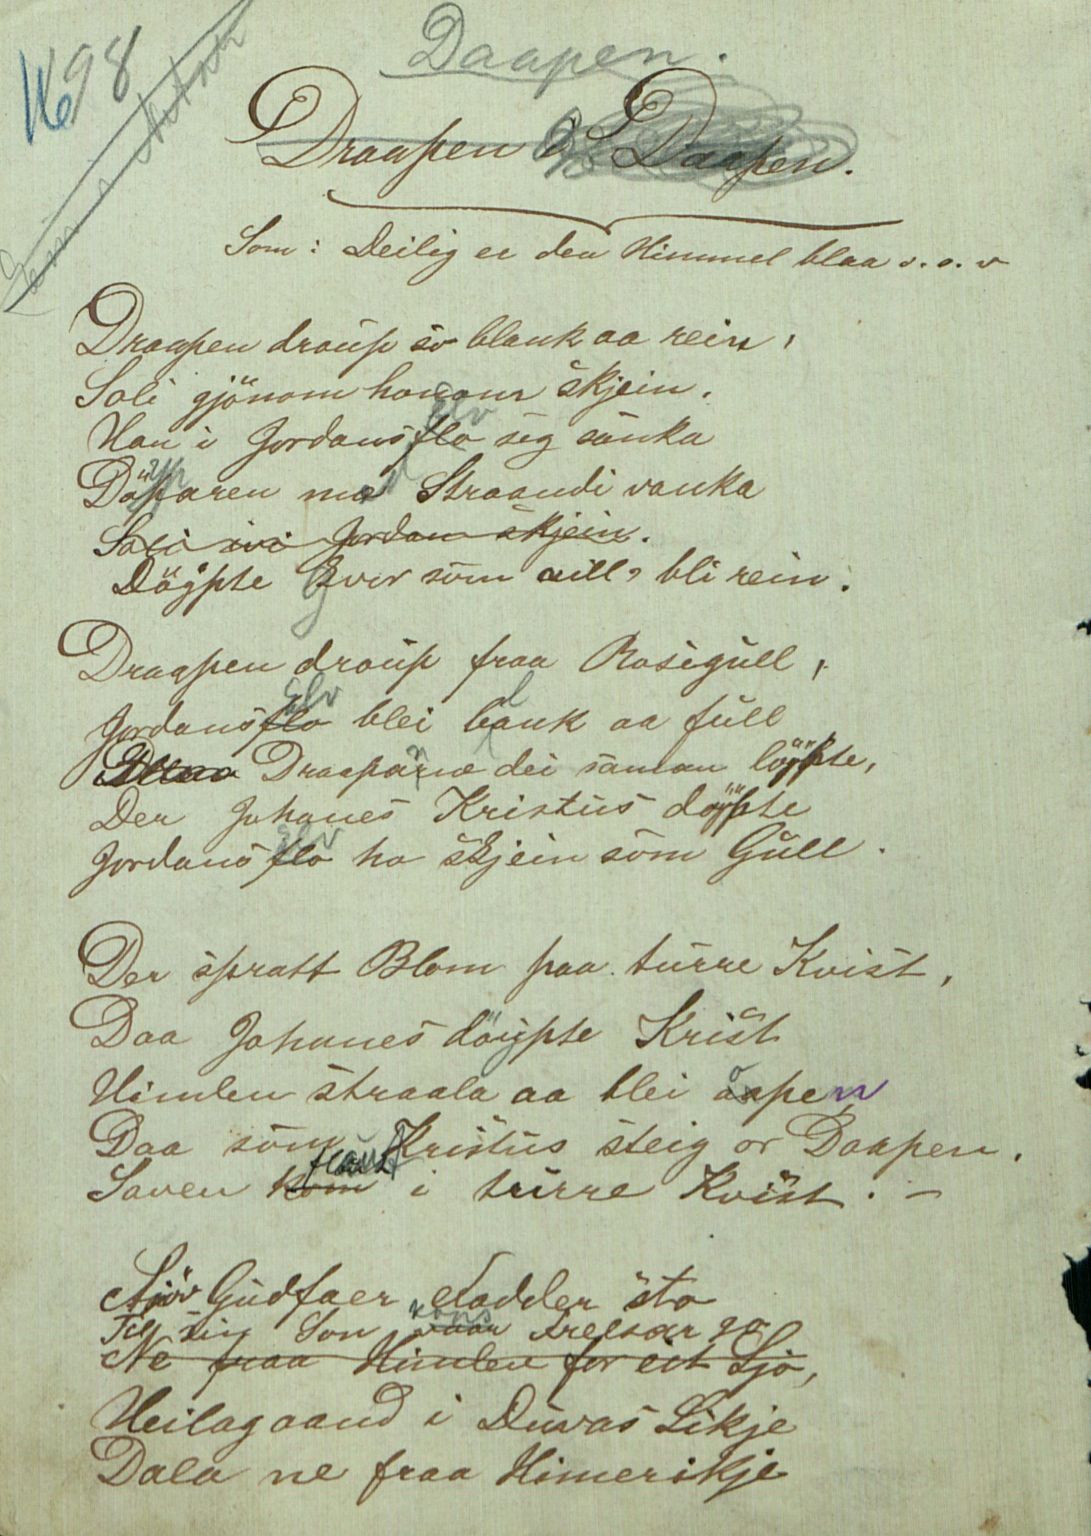 1698
Daapen.
Draapen & Daapen.
Som: Deilig er den Himmel blaa o. s. v
Draapen droup so blank aa rein,
Soli gjönom honom skjein.
Han i Jordanselv seg sänka
Döyparen med Straandi vanka
Soli ivi Jordan skjein.
Döypte kver som vill bli rein.
Draapen droup fraa Rosigull,
Jordanselv blei blank aa full
Draapane dei saman löypte,
Der Johanes Kristus döypte
Jordanselv ho skjein som Gull.
Der spratt Blom paa turre Kvist,
Daa Johanes döypte Krist
Himlen straala aa blei open
Daa som Kristus steig or Daapen.
Saven flaut i turre Kvist. —
Sjöv Gudfaer Fadder sto
Til sin Son vaar Frelsar go
Ne fraa Himlen for eit Ljo,
Heilagaand i Duvas Likje
Dala ne fraa Himerikje